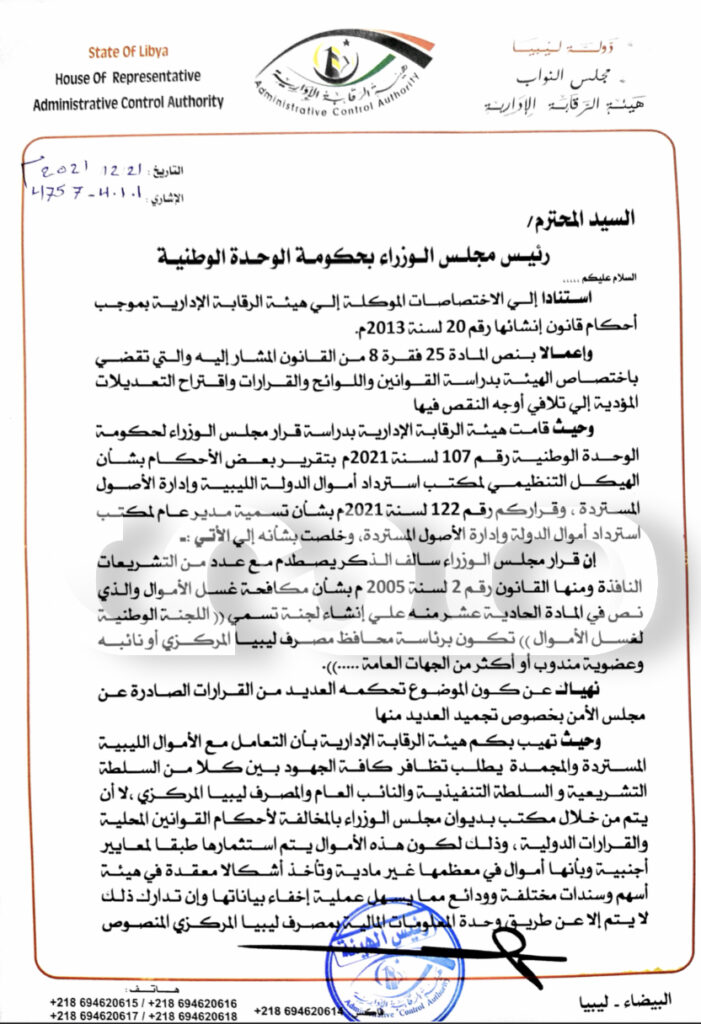 State Of Libya
House Of Representative
Administrative Control Authority
هيئة الرقابة الإدارية
Administrative Control Authority
دولة ليبيا
مجلس النواب
هيئة الرقابة الإدارية
التاريخ: 2021 12 21
الإشاري: 4757-4.1.1
السيد المحترم/
رئيس مجلس الوزراء بحكومة الوحدة الوطنية
السلام عليكم .....
استنادا إلي الاختصاصات الموكلة إلي هيئة الرقابة الإدارية بموجب
أحكام قانون إنشائها رقم 20 لسنة 2013م.
وإعمالا بنص المادة 25 فقرة 8 من القانون المشار إليه والتي تقضي
باختصاص الهيئة بدراسة القوانين واللوائح والقرارات واقتراح التعديلات
المؤدية إلي تلافي أوجه النقص فيها
وحيث قامت هيئة الرقابة الإدارية بدراسة قرار مجلس الوزراء لحكومة
الوحدة الوطنية رقم 107 لسنة 2021م بتقرير بعض الأحكام بشأن
الهيكل التنظيمي لمكتب استرداد أموال الدولة الليبية وإدارة الأصول
المستردة ، وقراركم رقم 122 لسنة 2021م بشأن تسمية مدير عام لمكتب
استرداد أموال الدولة وإدارة الأصول المستردة، وخلصت بشأنه إلي الأتي :-
إن قرار مجلس الوزراء سالف الذكر يصطدم مع عدد من التشريعات
النافذة ومنها القانون رقم 2 لسنة 2005 م بشأن مكافحة غسل الأموال والذي
نص في المادة الحادية عشر منه علي إنشاء لجنة تسمي (( اللجنة الوطنية
لغسل الأموال )) تكون برئاسة محافظ مصرف ليبيا المركزي أو نائبه
وعضوية مندوب أو أكثر من الجهات العامة .....)).
نهياك عن كون الموضوع تحكمه العديد من القرارات الصادرة عن
مجلس الأمن بخصوص تجميد العديد منها
وحيث تهيب بكم هيئة الرقابة الإدارية بأن التعامل مع الأموال الليبية
المستردة والمجمدة يطلب تظافر كافة الجهود بين كلا من السلطة
التشريعية و السلطة التنفيذية والنائب العام والمصرف ليبيا المركزي ،لا أن
يتم من خلال مكتب بديوان مجلس الوزراء بالمخالفة لأحكام القوانين المحلية
والقرارات الدولية ، وذلك لكون هذه الأموال يتم استثمارها طبقا لمعايير
أجنبية وبأنها أموال في معظمها غير مادية وتأخذ أشكالا معقدة في هيئة
أسهم وسندات مختلفة وودائع مما يسهل عملية إخفاء بياناتها وإن تدارك ذلك
لا يتم إلا عن طريق وحدة المعلومات المالية بمصرف ليبيا المركزي المنصوص
رئيس الهيئة
هيئة الرقابة الإدارية
Administrative Control Authority
البيضاء - ليبيا
فاكس: +218 694620614
هاتف:
+218 694620615 / +218 694620616
+218 694620617 / +218 694620618